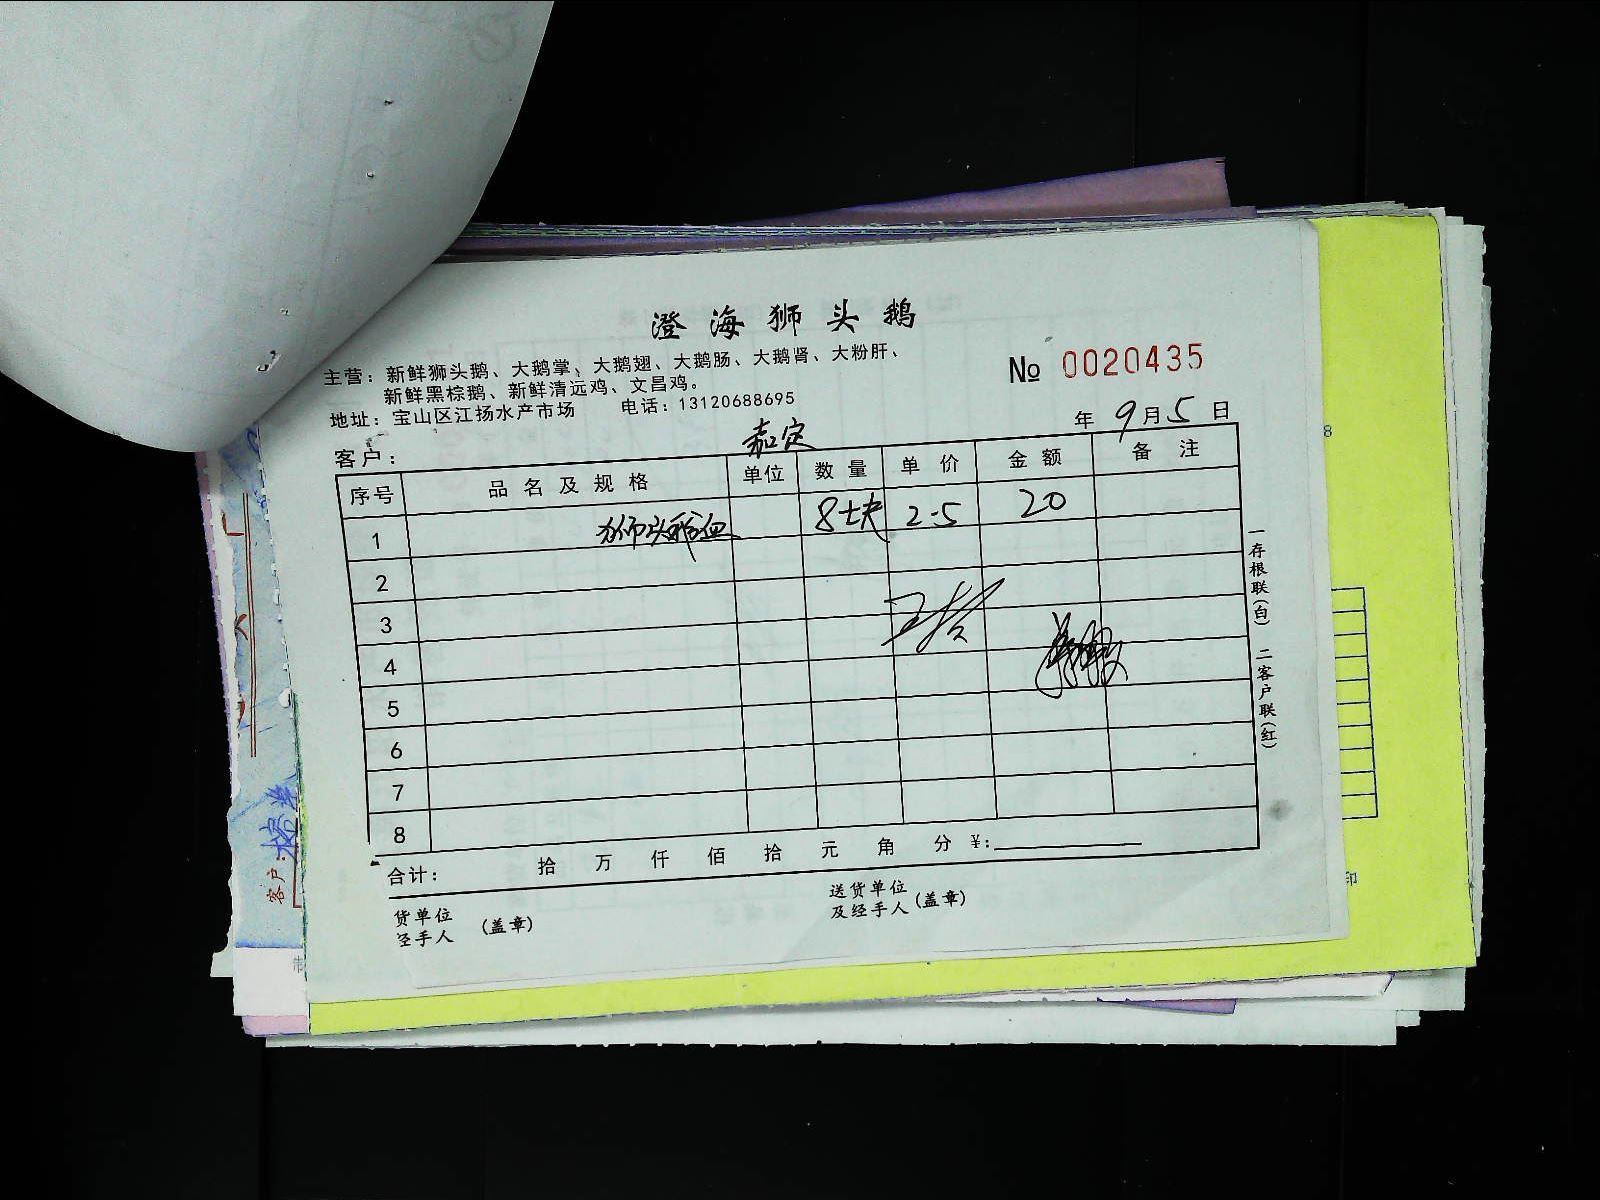 澄海狮头鹅
主营：新鲜狮头鹅、大鹅掌、大鹅翅、大鹅肠、大鹅肾、大粉肝、
新鲜黑棕鹅、新鲜清远鸡、文昌鸡。
地址：宝山区江扬水产市场 电话：13120688695
№ 0020435
年 9月5日
客户： 嘉定
序号 品名及规格 单位 数量 单价 金额 备注
1 狮头鹅血 8块 2.5 20
2
3
4
5
6
7
8
合计： 拾 万 仟 佰 拾 元 角 分 ¥:
货单位
经手人 (盖章)
送货单位
及经手人 (盖章)
一存根联(白) 二客户联(红)
客户:
8
印